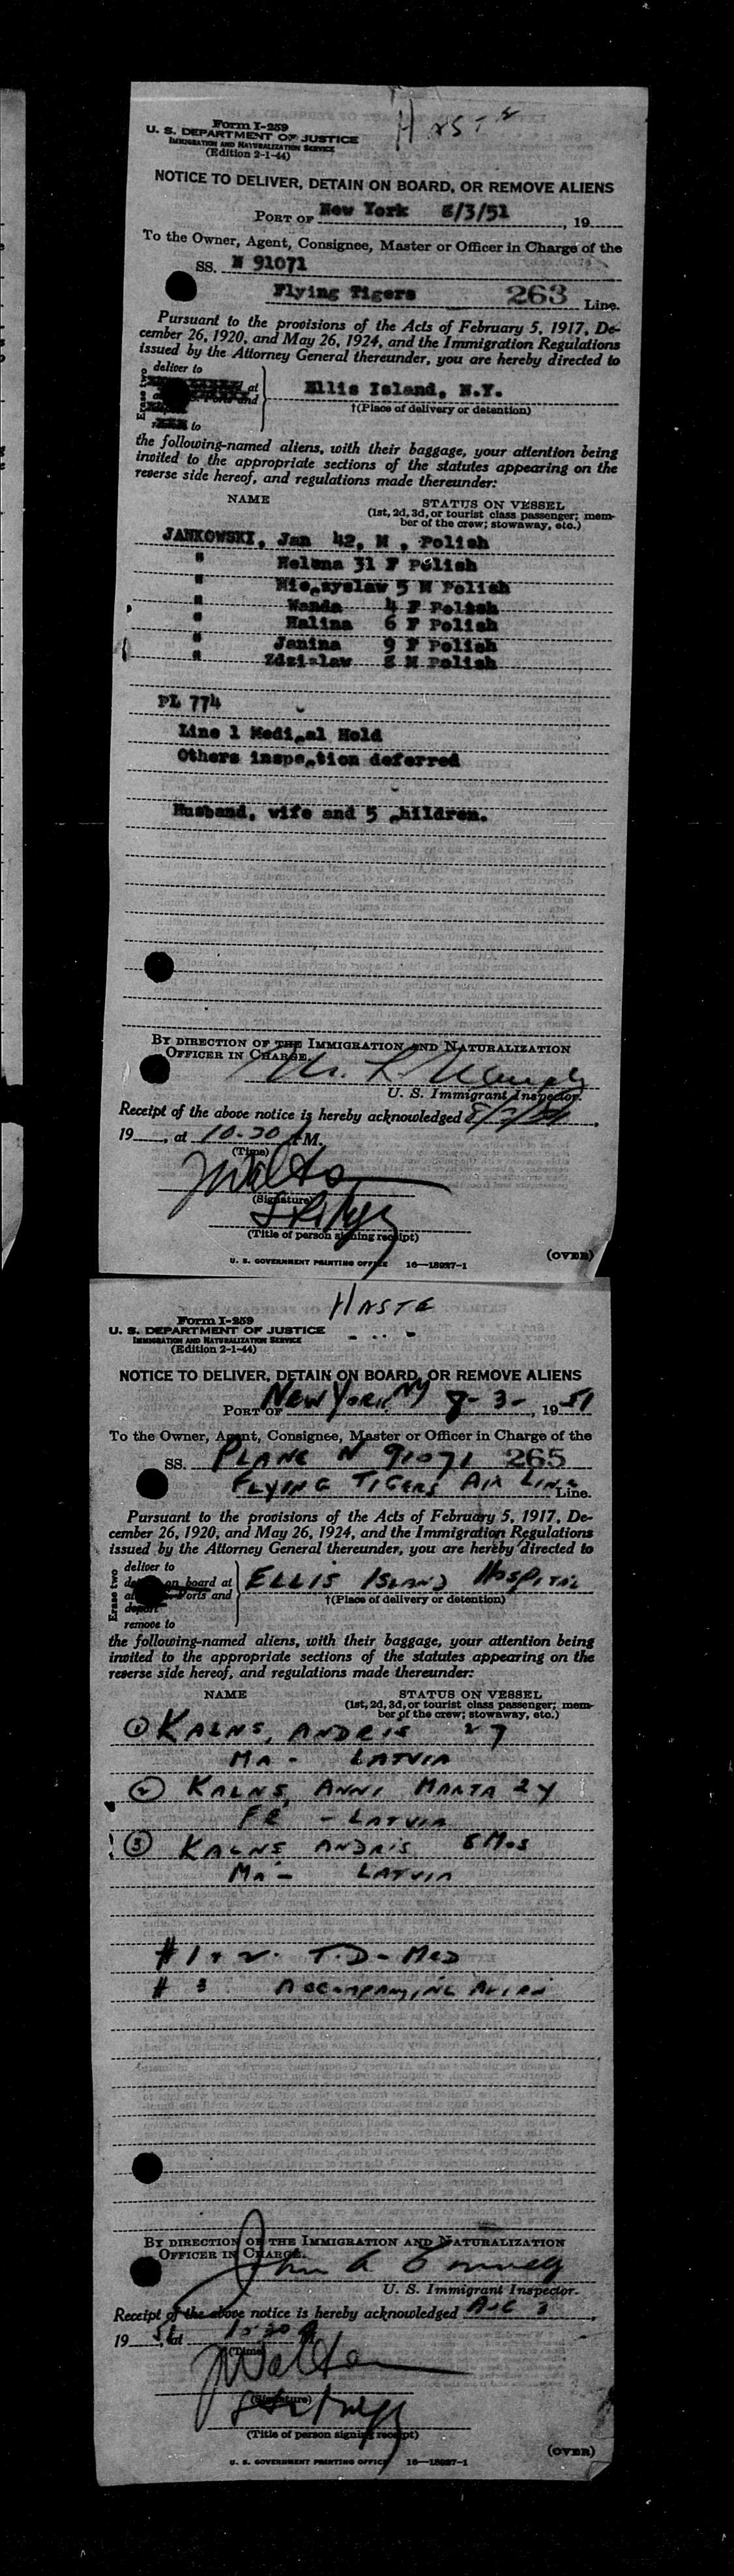 Form I-259
HASTE
U. S. DEPARTMENT OF JUSTICE
IMMIGRATION AND NATURALIZATION SERVICE
(Edition 2-1-44)
NOTICE TO DELIVER, DETAIN ON BOARD, OR REMOVE ALIENS
PORT OF New York 8/3/51, 19
To the Owner, Agent, Consignee, Master or Officer in Charge of the
SS. N 91071
Flying Tigers 263 Line.
Pursuant to the provisions of the Acts of February 5, 1917, De-
cember 26, 1920, and May 26, 1924, and the Immigration Regulations
issued by the Attorney General thereunder, you are hereby directed to
Erase two
deliver to
at
Ports and
to
Ellis Island, N.Y.
†(Place of delivery or detention)
the following-named aliens, with their baggage, your attention being
invited to the appropriate sections of the statutes appearing on the
reverse side hereof, and regulations made thereunder:
NAME STATUS ON VESSEL
(1st, 2d, 3d, or tourist class passenger; mem-
ber of the crew; stowaway, etc.)
JANKOWSKI, Jan 42, M, Polish
" Helena 31 F Polish
" Mieczyslaw 5 M Polish
" Wanda 4 F Polish
" Halina 6 F Polish
" Janina 9 F Polish
" Zdzislaw 8 M Polish
PL 774
Line 1 Medical Hold
Others inspection deferred
Husband, wife and 5 children.
BY DIRECTION OF THE IMMIGRATION AND NATURALIZATION
OFFICER IN CHARGE.
U. S. Immigrant Inspector.
Receipt of the above notice is hereby acknowledged
19, at 10:30 AM.
(Time)
JWalton
(Signature)
(Title of person signing receipt)
U. S. GOVERNMENT PRINTING OFFICE 16—18927-1
(OVER)
HASTE
Form I-259
U. S. DEPARTMENT OF JUSTICE
IMMIGRATION AND NATURALIZATION SERVICE
(Edition 2-1-44)
NOTICE TO DELIVER, DETAIN ON BOARD, OR REMOVE ALIENS
PORT OF NEW YORK NY 8-3-, 1951
To the Owner, Agent, Consignee, Master or Officer in Charge of the
SS. PLANE N 91071 265
FLYING TIGERS AIR LINE Line.
Pursuant to the provisions of the Acts of February 5, 1917, De-
cember 26, 1920, and May 26, 1924, and the Immigration Regulations
issued by the Attorney General thereunder, you are hereby directed to
Erase two
deliver to
on board at
Ports and
depart
remove to
ELLIS ISLAND HOSPITAL
†(Place of delivery or detention)
the following-named aliens, with their baggage, your attention being
invited to the appropriate sections of the statutes appearing on the
reverse side hereof, and regulations made thereunder:
NAME STATUS ON VESSEL
(1st, 2d, 3d, or tourist class passenger; mem-
ber of the crew; stowaway, etc.)
① KALNS, ANDRIS 27
MA - LATVIA
② KALNS, ANNI MARTA 24
FE - LATVIA
③ KALNS ANDRIS 8 MOS
MA - LATVIA
#1 + 2. T.D - MED
# 3 ACCOMPANYING ALIEN
BY DIRECTION OF THE IMMIGRATION AND NATURALIZATION
OFFICER IN CHARGE.
U. S. Immigrant Inspector.
Receipt of the above notice is hereby acknowledged AUG 3,
1951, at 10 30 A
(Time)
JWalton
(Signature)
(Title of person signing receipt)
U. S. GOVERNMENT PRINTING OFFICE 16—18927-1
(OVER)